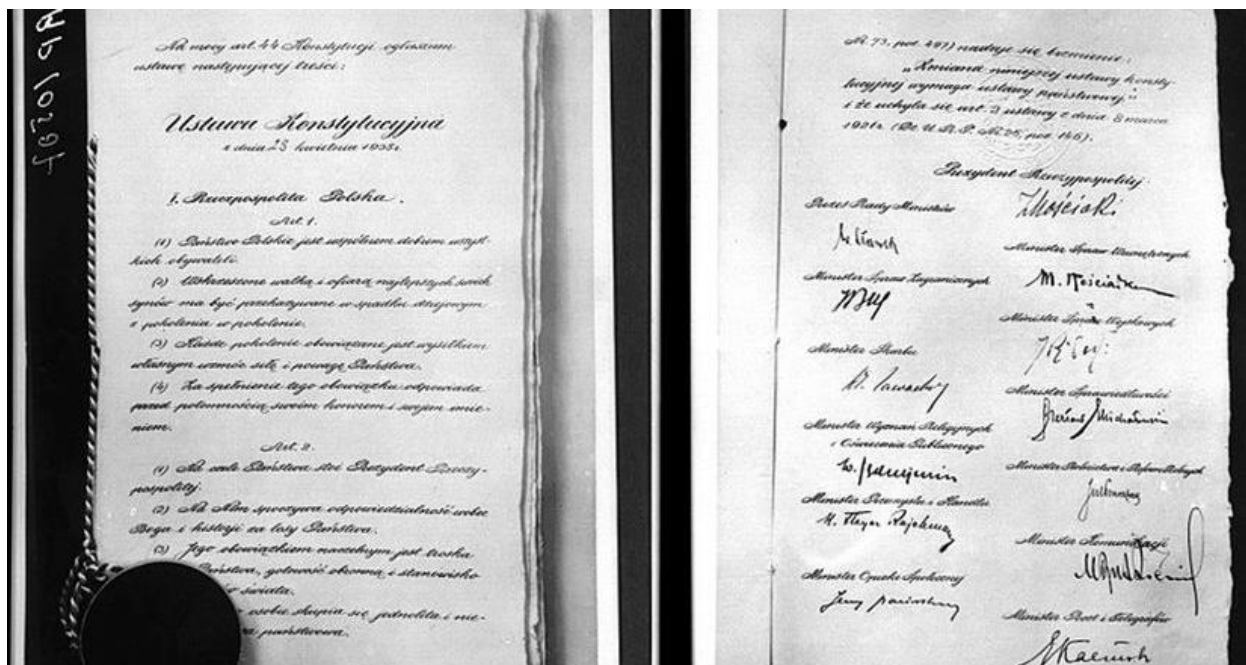 Na mocy art. 44 Konstytucji ogłaszam
ustawę następującej treści:
Ustawa Konstytucyjna
z dnia 23 kwietnia 1935r.
I. Rzeczpospolita Polska.
Art. 1.
(1) Państwo Polskie jest wspólnem dobrem wszyst-
kich obywateli.
(2) Wskrzeszone walką i ofiarą najlepszych swoich
synów ma być przekazywane w spadku dziejowym
z pokolenia w pokolenie.
(3) Każde pokolenie obowiązane jest wysiłkiem
własnym wzmóc siłę i powagę Państwa.
(4) Za spełnienie tego obowiązku odpowiada
przed potomnością swoim honorem i swojem imie-
niem.
Art. 2.
(1) Na czele Państwa stoi Prezydent Rzeczy-
pospolitej.
(2) Na Nim spoczywa odpowiedzialność wobec
Boga i historji za losy Państwa.
(3) Jego obowiązkiem naczelnym jest troska
Państwa, gotowość obronną i stanowisko
świata.
osobie skupia się jednolita i nie-
państwowa.
Nr. 73, poz. 497) nadaje się brzmienie:
"Zmiana niniejszej ustawy konsty-
tucyjnej wymaga ustawy państwowej."
i że uchyla się art. 3 ustawy z dnia 8 marca
(Dz. U. R. P. Nr. 25, poz. 146).
Prezydent Rzeczypospolitej:
I Mościcki
Prezes Rady Ministrów
W Sławek
Minister Spraw Wewnętrznych
M. Kościałkowski
Minister Spraw Zagranicznych
Minister Spraw Wojskowych
Minister Skarbu
Minister Sprawiedliwości
Czesław Michałowski
Minister Wyznań Religijnych
i Oświecenia Publicznego
W. Jędrzejewicz
Minister Rolnictwa i Reform Rolnych
Minister Przemysłu i Handlu
H. Floyar Rajchman
Minister Komunikacji
Minister Opieki Społecznej
Jerzy Paciorkowski
Minister Poczt i Telegrafów
E Kaliński